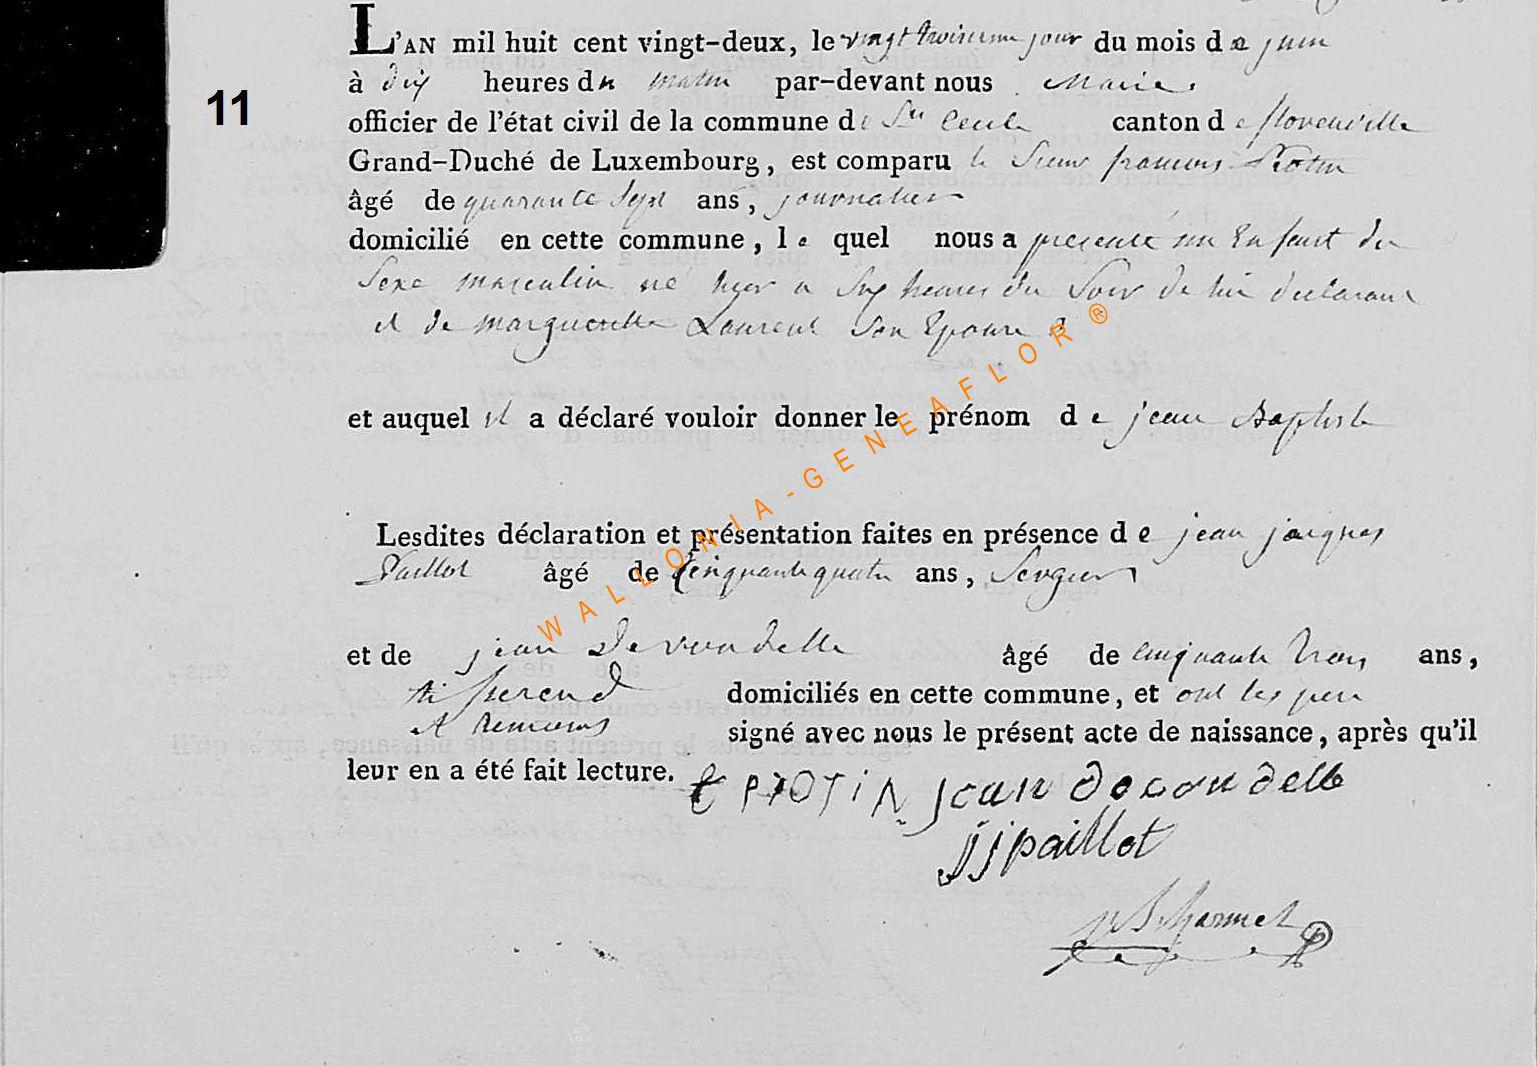 11
L'AN mil huit cent vingt-deux, le vingt troisieme jour du mois de juin
à dix heures du matin par-devant nous Maire
officier de l'état civil de la commune de Ste Cecile canton de florenville
Grand-Duché de Luxembourg, est comparu le Sieur francois Protin
âgé de quarante Sept ans, journalier
domicilié en cette commune, le quel nous a presenté un Enfant du
Sexe masculin né hyer a Six heures du Soir de lui declarant
et de margueritte Laurent Son Epouse
et auquel il a déclaré vouloir donner le prénom de jean Baptiste
Lesdites déclaration et présentation faites en présence de jean jacques
Paillot âgé de Cinquante quatre ans, Sergier
et de jean Devondelle âgé de cinquante trois ans,
tisserend domiciliés en cette commune, et ont les pere
et temoins signé avec nous le présent acte de naissance, après qu'il
leur en a été fait lecture. f protin jean devondelle
jj paillot
WALLONIA-GENEAFLOR®